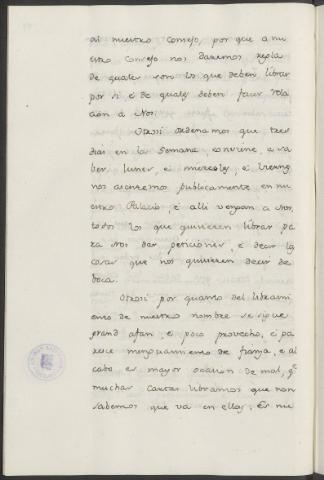 al nuestro Consejo, por que a nu
estro Consejo nos daremos regla
de quales son los que deben librar
por si é de quales deben facer rela
cion á Nos.
Otrosi ordenamos que tres
dias en la semana, conviene, a sa
ber, lunes, é miercoles, é viernes
nos asentemos publicamente en nu
estro Palacio, é alli vengan a Nos
todos los que quisieren librar pa
ra Nos dar peticiones, é decir las
cosas que nos quisieren decir de
boca.
Otrosi por quanto del librami
ento de nuestro nombre se sigue
grand afan, é poco provecho, é pa
resce menguamiento de franja, é al
cabo es mayor ocasion de mal, q.e
muchas cartas libramos que non
sabemos que va en ellas; Es nu